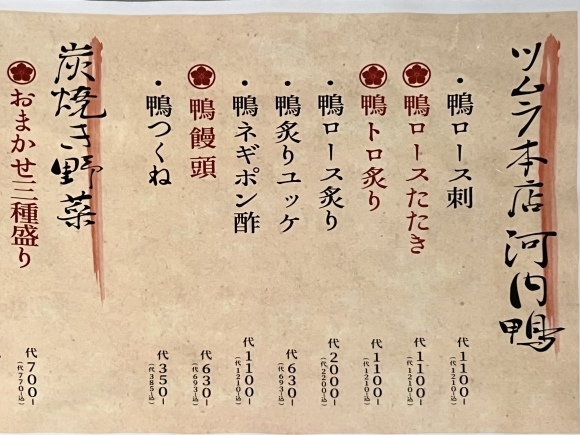 ツムラ本店 河内鴨
・鴨ロース刺 代1100-
(代1210-込)
鴨ロースたたき 代1100-
(代1210-込)
鴨トロ炙り 代1100-
(代1210-込)
・鴨ロース炙り 代2000-
(代2200-込)
・鴨炙りユッケ 代630-
(代693-込)
・鴨ネギポン酢 代1100-
(代1210-込)
鴨饅頭 代630-
(代693-込)
・鴨つくね 代350-
(代385-込)
炭焼き野菜
おまかせ三種盛り 代700-
(代770-込)